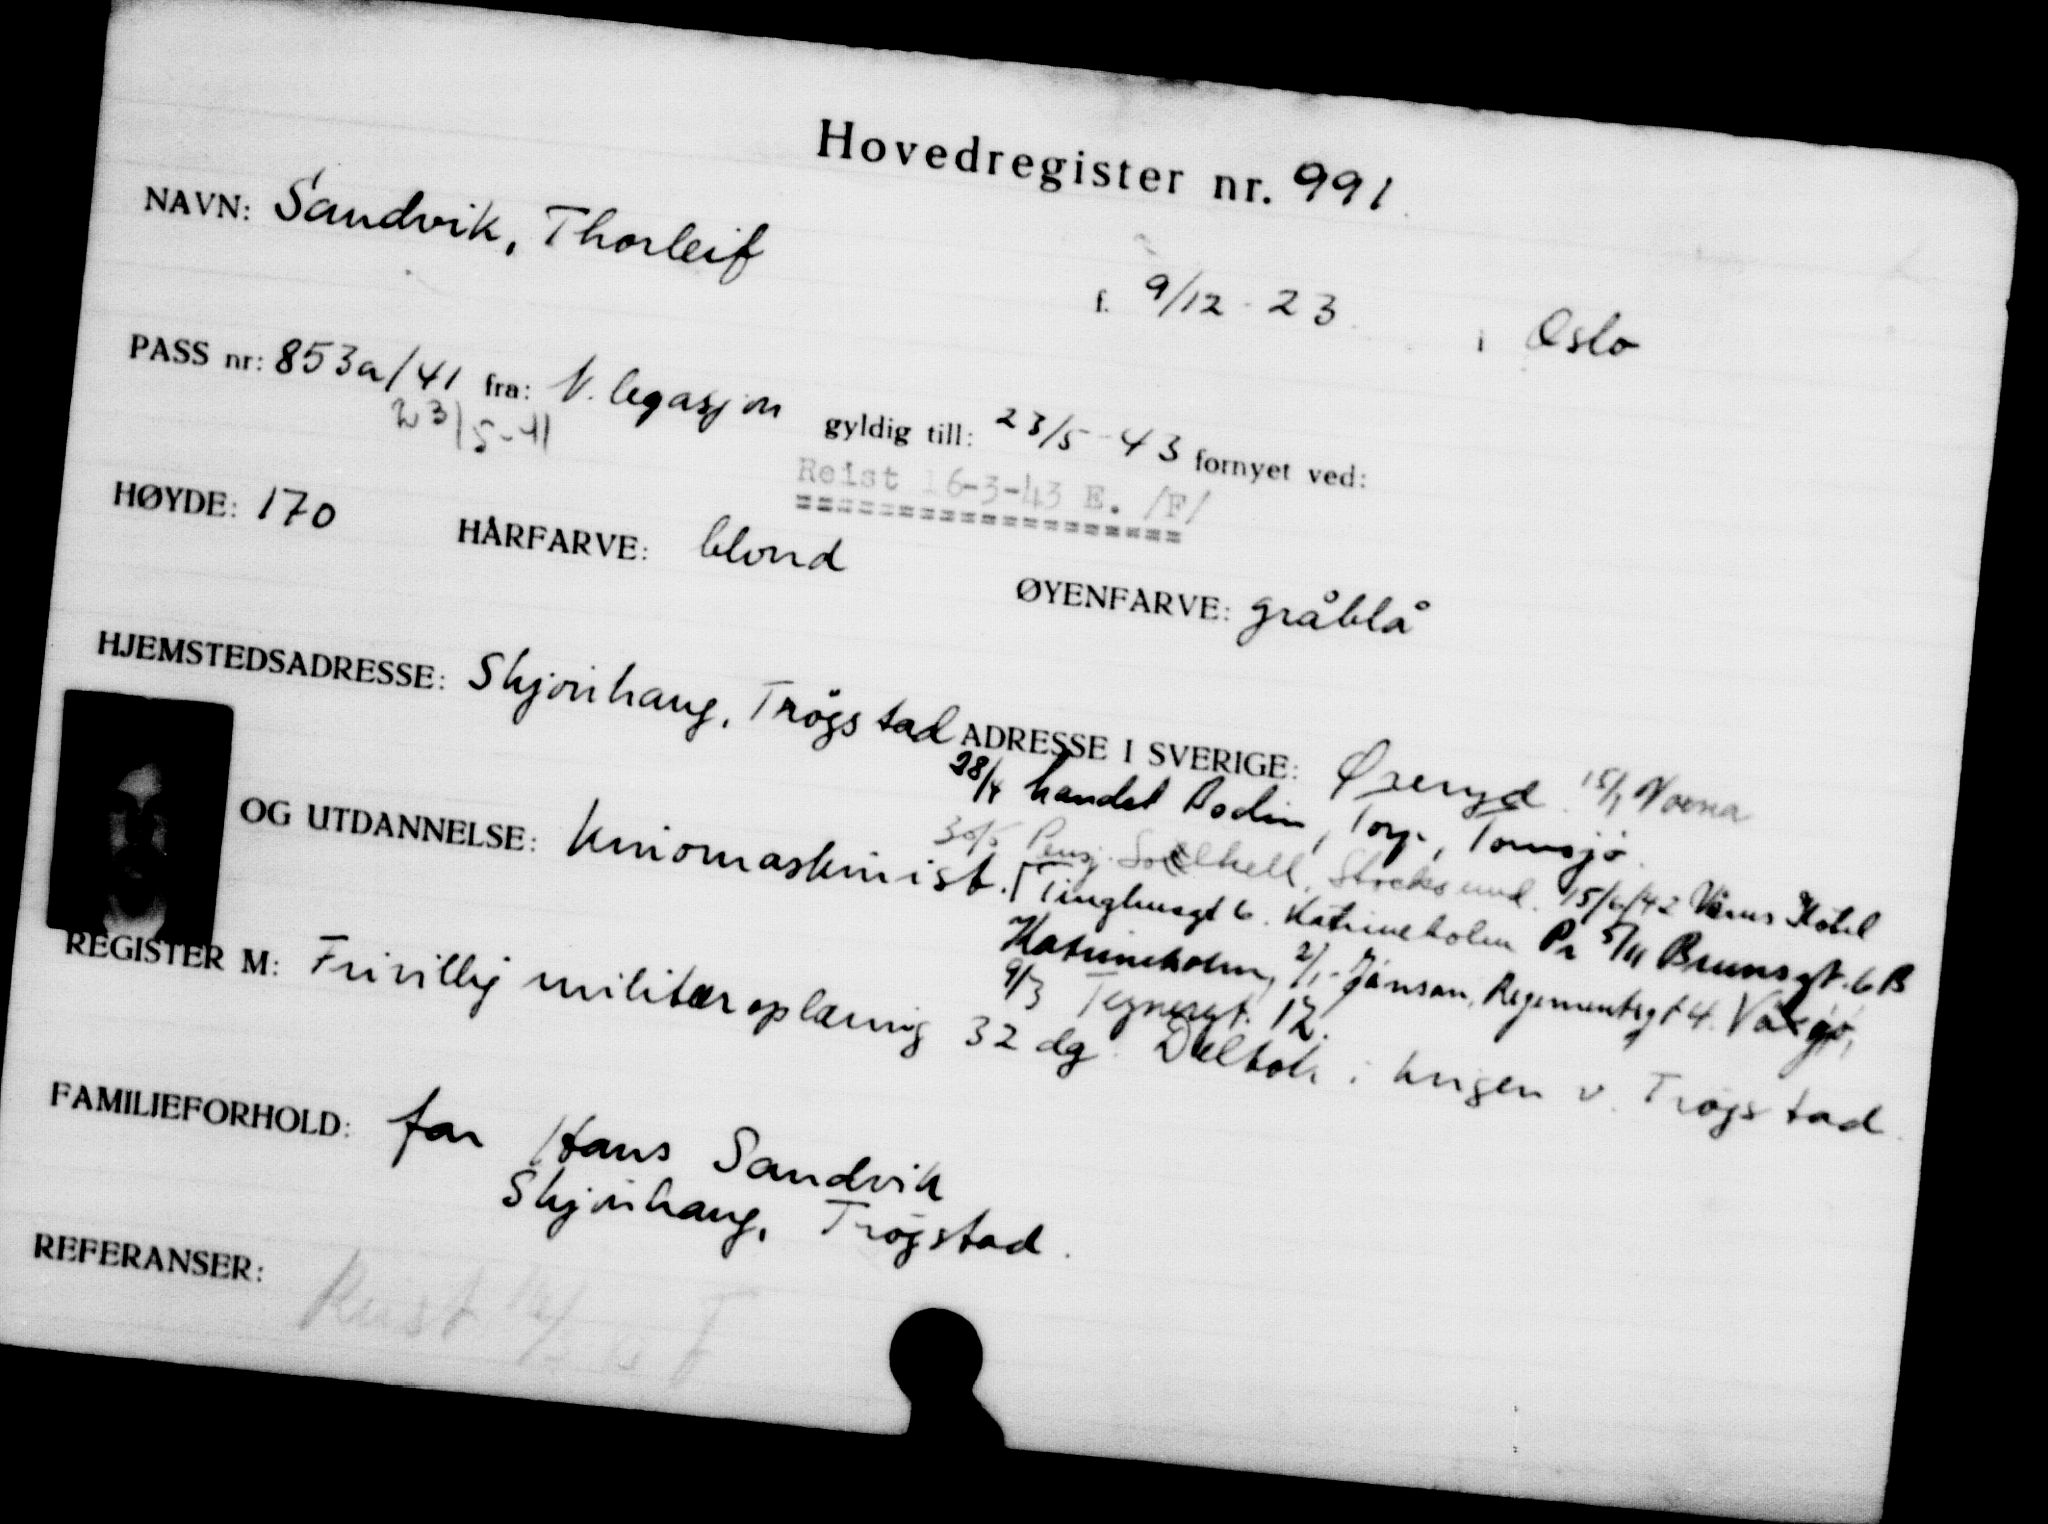 Hovedregister nr. 991.
NAVN: Sandvik, Thorleif f. 9/12-23. i Oslo
PASS nr: 853a/41 fra: N. legasjon gyldig till: 23/5-43 fornyet ved:
23/5-41
Reist 16-3-43 E. /F/
HØYDE: 170 HÅRFARVE: blond ØYENFARVE: gråblå
HJEMSTEDSADRESSE: Skjønhaug, Trøgstad ADRESSE I SVERIGE: Øreryd. 15/1 Norna
28/4 Bodin, Torp, Tomsjö.
OG UTDANNELSE: kinomaskinist.
30/5 Pensj. Solhell, Stocksund. 15/6/42 Hotel
Tinghusgt 6. Katrineholm Pr 5/11 Brunsgt. 6 B
Katrineholm, 2/1- Jánson, Regementsgt 4. Växjö,
9/3 Tegnergt. 12.
REGISTER M: Frivillig militæroplæring 32 dg. Deltok i krigen v. Trøgstad.
FAMILIEFORHOLD: far Hans Sandvik
Skjønhaug, Trøgstad.
REFERANSER:
Reist 16/3 43 F